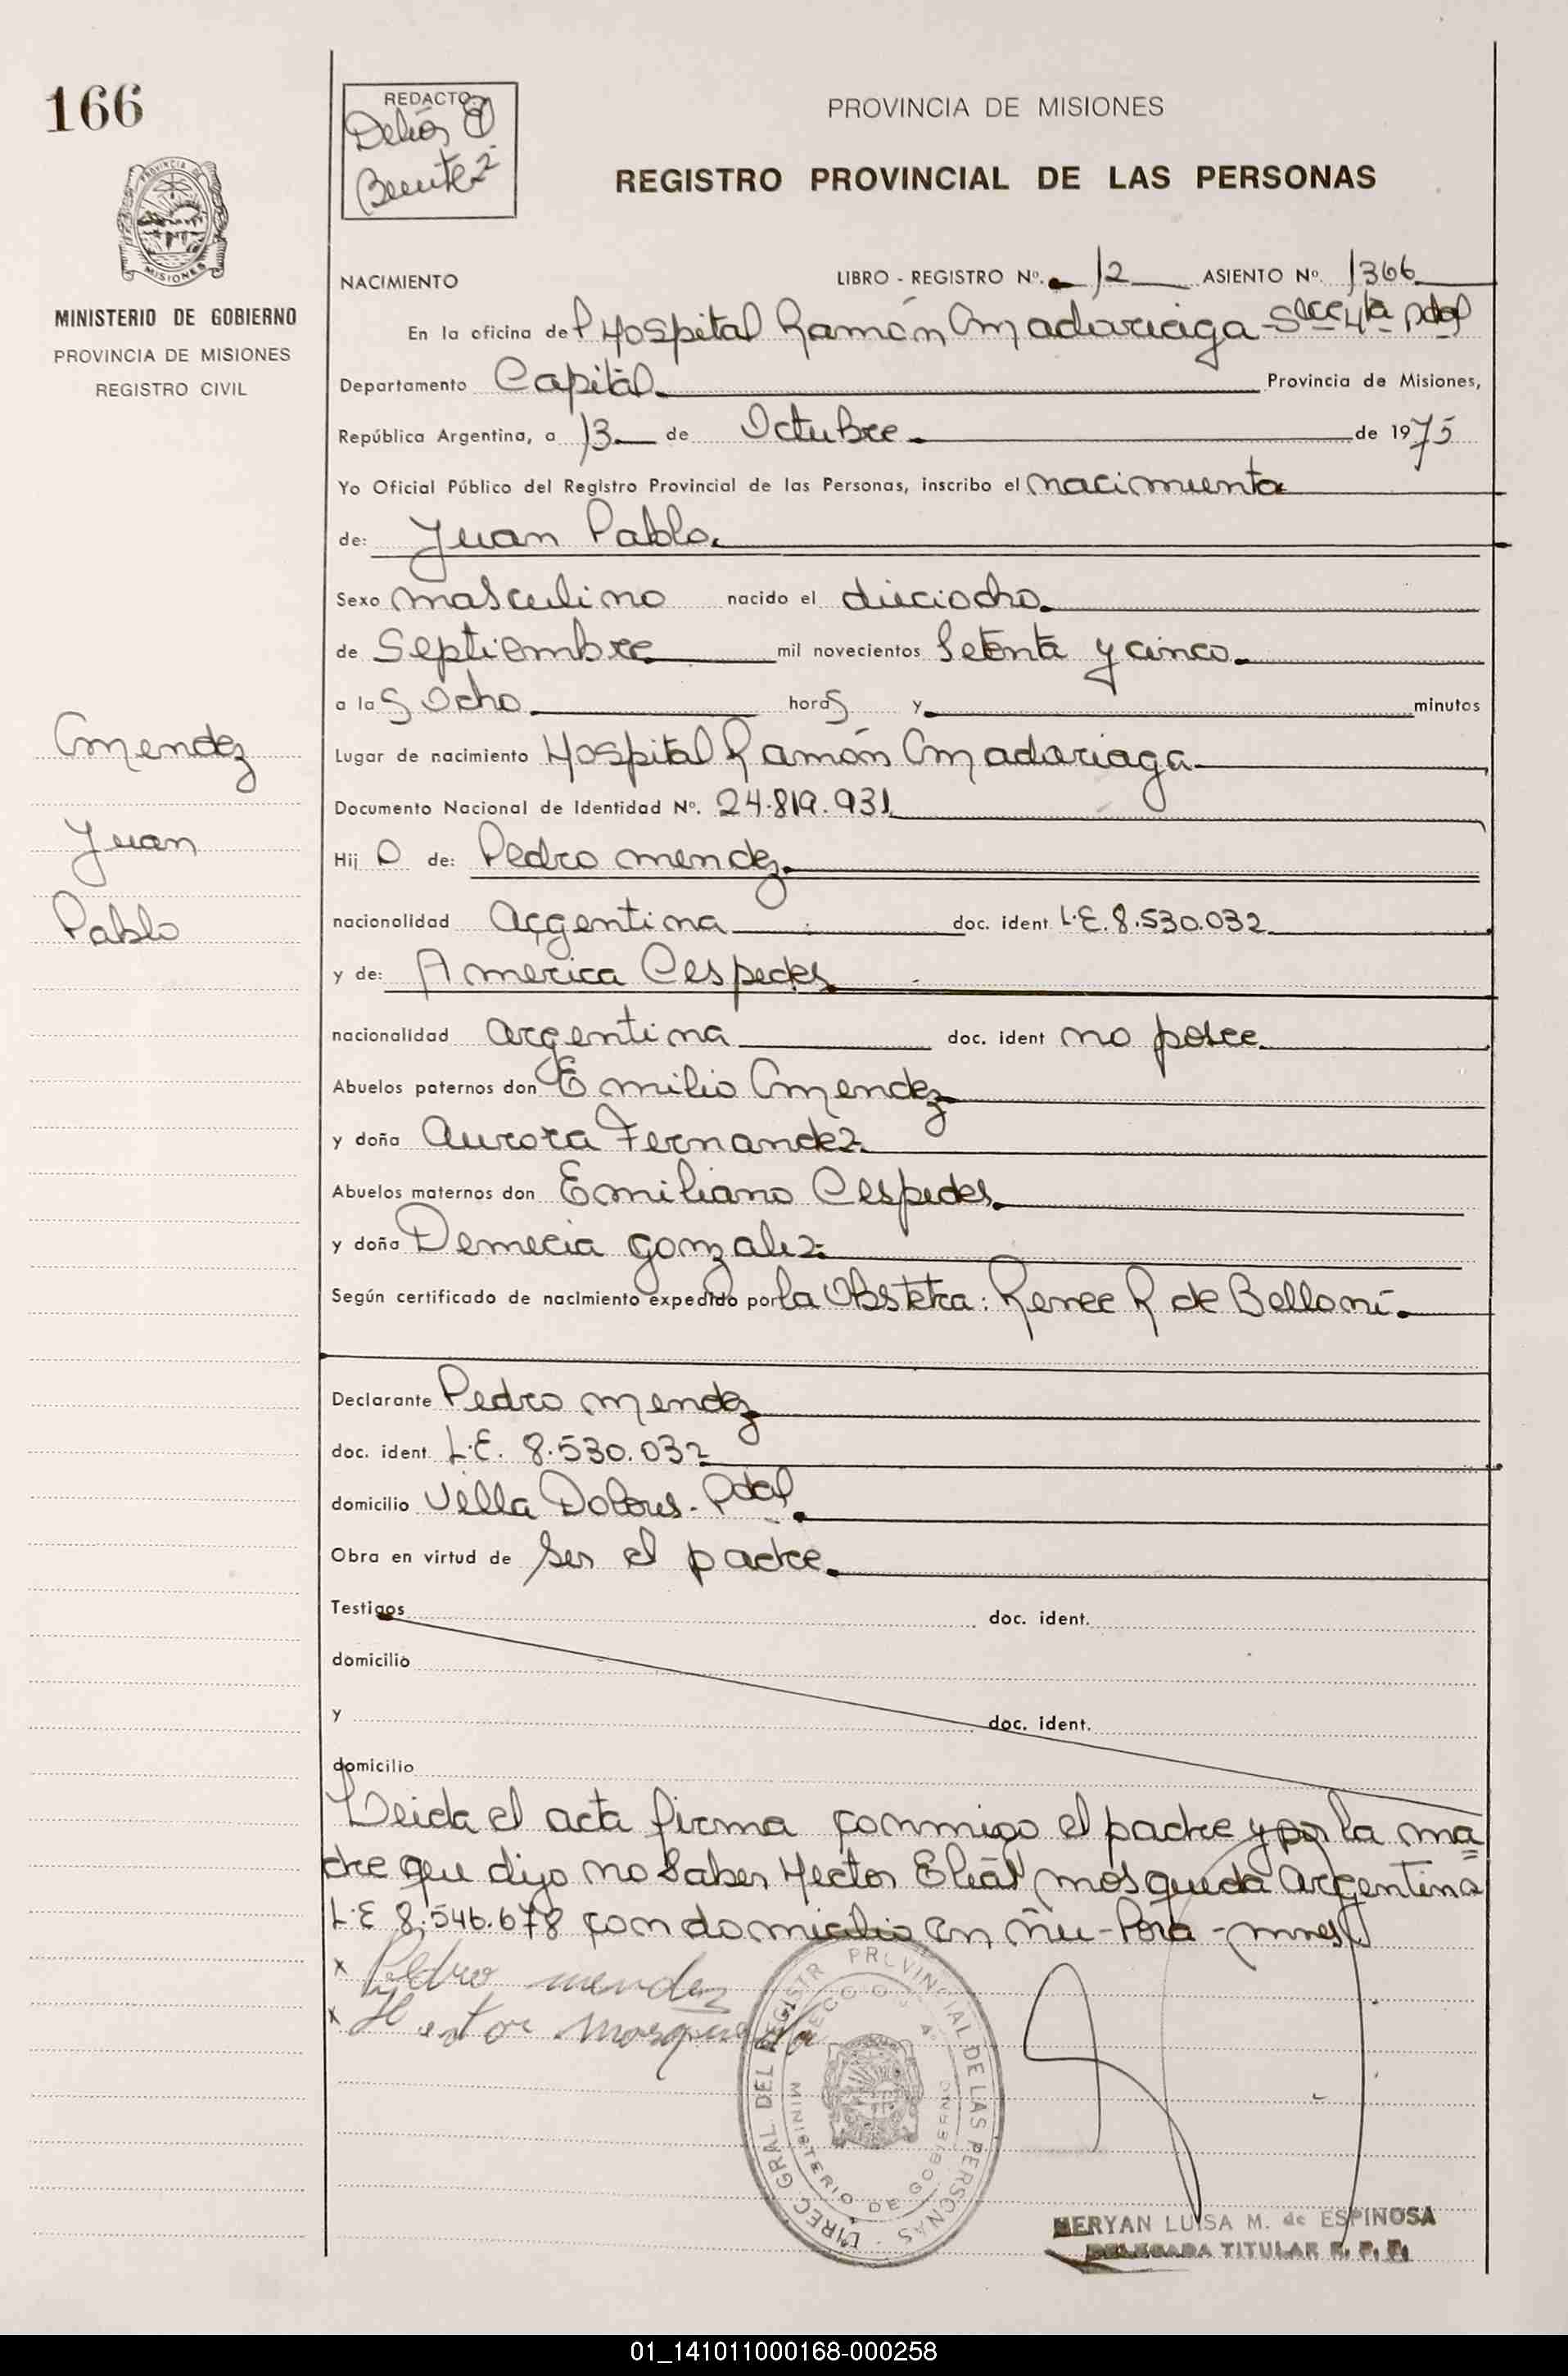 166
REDACTO
Benitez
PROVINCIA DE MISIONES
REGISTRO PROVINCIAL DE LAS PERSONAS
PROVINCIA
MISIONES
MINISTERIO DE GOBIERNO
PROVINCIA DE MISIONES
REGISTRO CIVIL
NACIMIENTO LIBRO - REGISTRO Nº. 12 ASIENTO Nº. 1366
En la oficina del Hospital Ramón Madariaga - Secc 4ta Pdas
Departamento Capital. Provincia de Misiones,
República Argentina, a 13 de Octubre de 1975
Yo Oficial Público del Registro Provincial de las Personas, inscribo el nacimiento
de: Juan Pablo.
Sexo masculino nacido el dieciocho.
de Septiembre mil novecientos Setenta y cinco.
a las Ocho horas y minutos
Lugar de nacimiento Hospital Ramón Madariaga
Documento Nacional de Identidad Nº. 24.819.931
Hijo de: Pedro mendez.
nacionalidad Argentina doc. ident. L.E. 8.530.032
y de: America Cespedes
nacionalidad argentina doc. ident no posee
Abuelos paternos don Emilio Mendez
y doña Aurora Fernandez
Abuelos maternos don Emiliano Cespedes
y doña Demecia gonzalez
Según certificado de nacimiento expedido por la Obstetra: Renee R de Belloni.
Mendez
Juan
Pablo
Declarante Pedro mendez
doc. ident. L.E. 8.530.032
domicilio Villa Dolores - Pdas.
Obra en virtud de ser el padre.
Testigos doc. ident.
domicilio
y doc. ident.
domicilio
Leida el acta firma conmigo el padre y por la ma
dre que dijo no saber Hector Elias mosqueda argentino
L.E 8.546.678 con domicilio en Ñu-Pora - mnes
x Pedro mendez
x Hector Mosqueda
DIREC GRAL DEL REGISTR PROVINCIAL DE LAS PERSONAS
MINISTERIO DE GOBIERNO
MERYAN LUISA M. de ESPINOSA
DELEGADA TITULAR R. P. P.
01_141011000168-000258